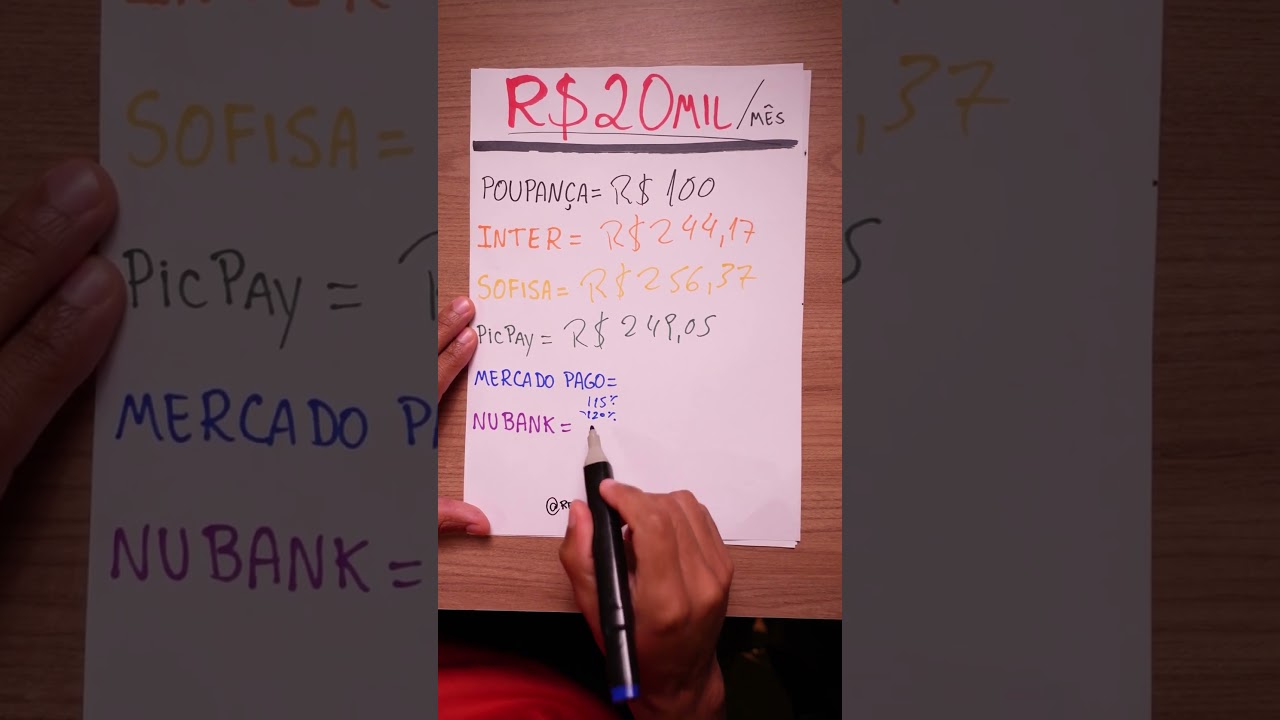 R$20MIL/MÊS
POUPANÇA= R$ 100
INTER = R$244,17
SOFISA= R$256,37
PicPAY = R$ 249,05
MERCADO PAGO=
115%
120%
NUBANK =